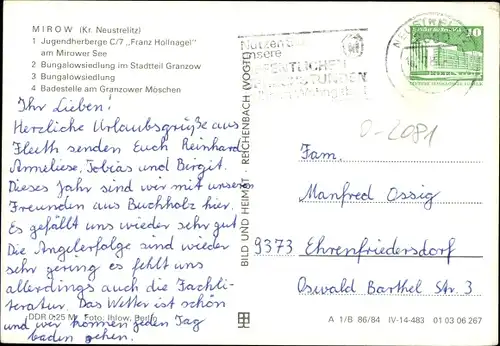 MIROW (Kr. Neustrelitz)
1 Jugendherberge C/7 „Franz Hollnagel"
am Mirower See
2 Bungalowsiedlung im Stadtteil Granzow
3 Bungalowsiedlung
4 Badestelle am Granzower Möschen
Ihr Lieben!
Herzliche Urlaubsgrüße aus
Fleeth senden Euch Reinhard
Anneliese, Tobias und Birgit.
Dieses Jahr sind wir mit unseren
Freunden aus Buchholz hier.
Es gefällt uns wieder sehr gut
Die Angelerfolge sind wieder
sehr gering es fehlt uns
allerdings auch die Fachli-
teratur. Das Wetter ist schön
und wir können jeden Tag
baden gehen.
DDR 0,25 M Foto: Ihlow, Berlin
BILD UND HEIMAT REICHENBACH (VOGTL)
Nutzen
unsere
ÖFFENTLICHEN
10
0-2081
Fam.
Manfred Ossig
9373 Ehrenfriedersdorf
Oswald Barthel Str. 3
A 1/B 86/84 IV-14-483 01 03 06 267